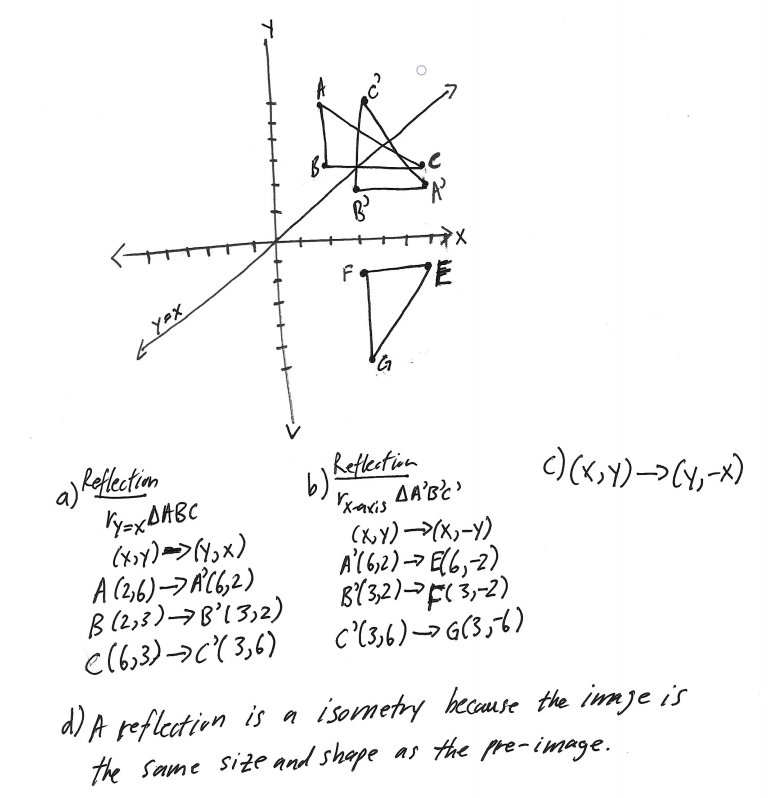 Y
A
C'
B
C
A'
B'
X
F
E
y=x
G
a) Reflection
r y=x ΔABC
(x,y)→(y,x)
A(2,6)→A'(6,2)
B(2,3)→B'(3,2)
C(6,3)→C'(3,6)
b) Reflection
r x-axis ΔA'B'C'
(x,y)→(x,-y)
A'(6,2)→E(6,-2)
B'(3,2)→F(3,-2)
C'(3,6)→G(3,-6)
c) (x,y)→(y,-x)
d) A reflection is a isometry because the image is
the same size and shape as the pre-image.